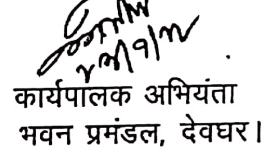 कार्यपालक अभियंता
भवन प्रमंडल, देवघर।